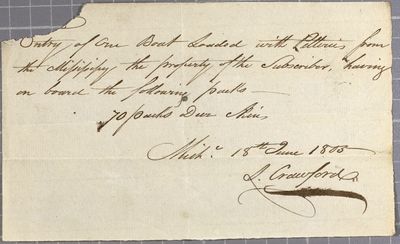 Entry of One Boat Loaded with Pelteries from
the Missisipy the property of the Subscriber, having
on board the following packs —
70 packs Deer Skins
Michc. 18th June 1805
L. Crawford